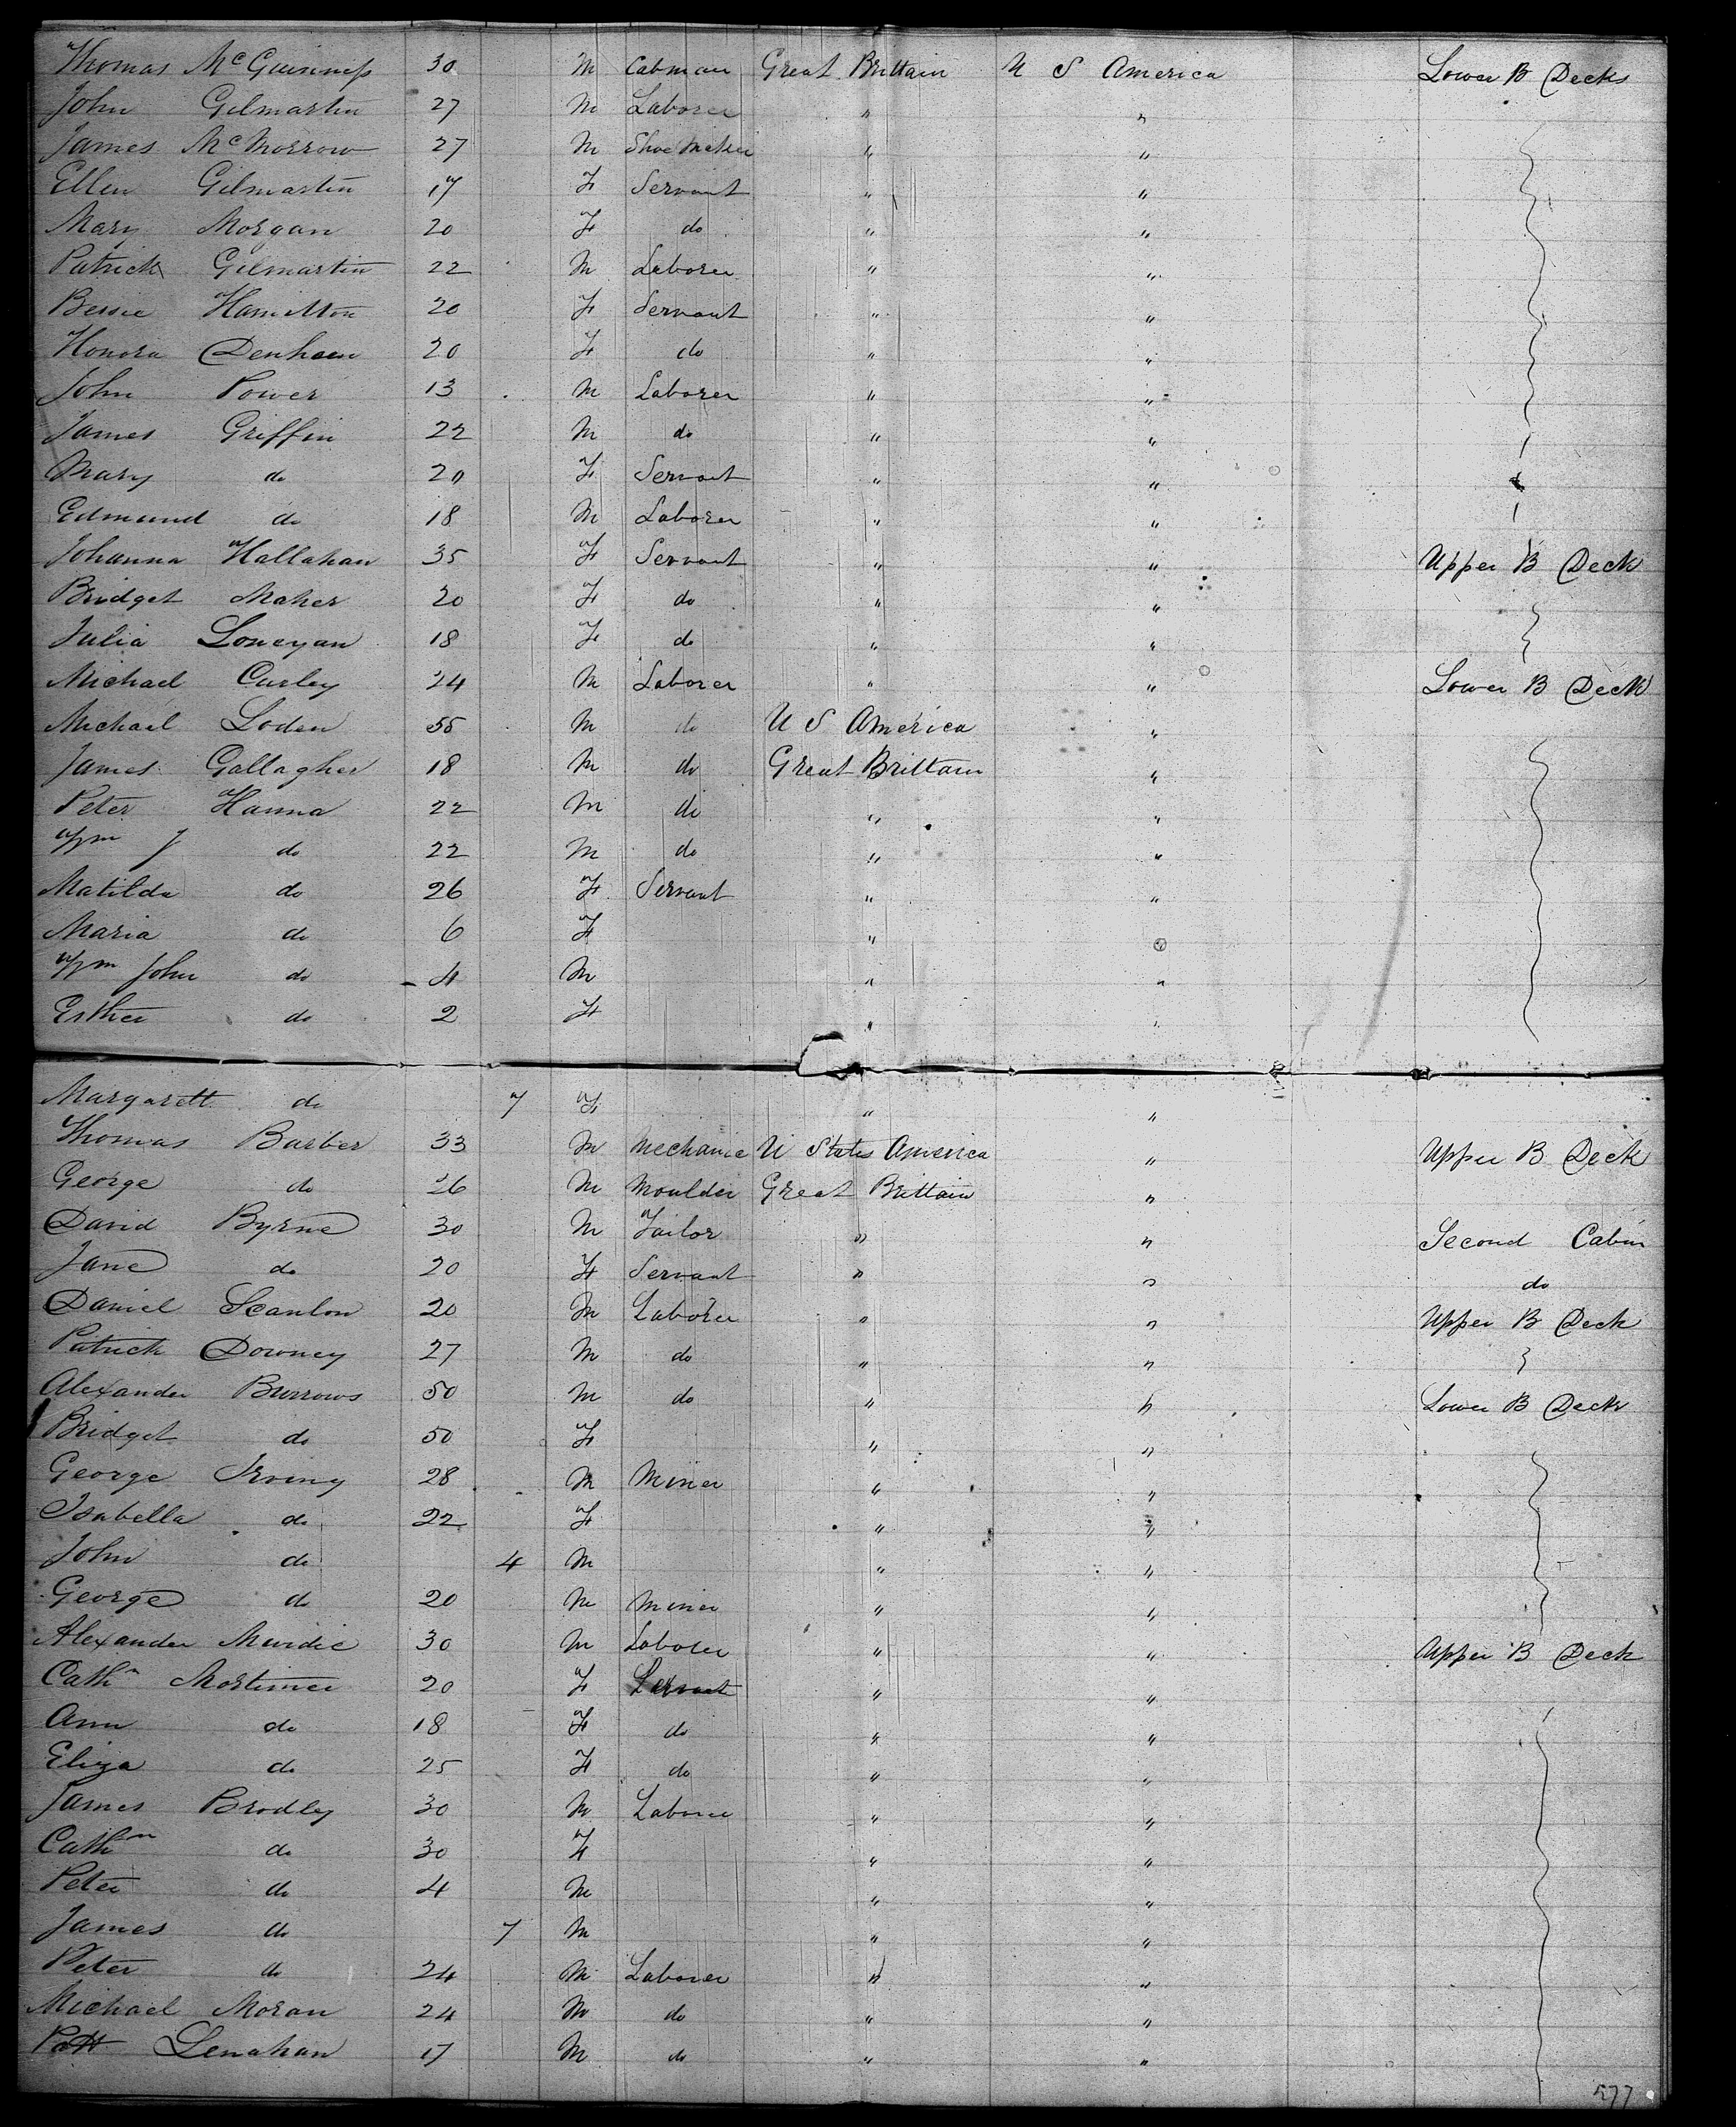 Thomas McGuinness 30 M Cabman Great Brittain U S America Lower B Decks
John Gilmartin 27 M Laborer " "
James McMorrow 27 M Shoe Maker " "
Ellen Gilmartin 17 F Servant " "
Mary Morgan 20 F do " "
Patrick Gilmartin 22 M Laborer " "
Bessie Hamilton 20 F Servant " "
Honora Denheen 20 F do " "
John Power 13 M Laborer " "
James Griffin 22 M do " "
Mary do 20 F Servant " "
Edmund do 18 M Laborer " "
Johanna Hallahan 35 F Servant " " Upper B Deck
Bridget Maher 20 F do " "
Julia Loneyan 18 F do " "
Michael Curley 24 M Laborer " " Lower B Deck
Michael Loden 55 M do U S America "
James Gallagher 18 M do Great Brittain "
Peter Hanna 22 M do " "
Wm J do 22 M do " "
Matilda do 26 F Servant " "
Maria do 6 F " "
Wm John do 4 M " "
Esther do 2 F " "
Margarett do 7 F " "
Thomas Barber 33 M Mechanic U States America " Upper B Deck
George do 26 M Moulder Great Brittain "
David Byrne 30 M Tailor " " Second Cabin
Jane do 20 F Servant " " do
Daniel Scanlon 20 M Laborer " " Upper B Deck
Patrick Downey 27 M do " "
Alexander Burrows 50 M do " " Lower B Deck
Bridget do 50 F " "
George Irving 28 M Miner " "
Isabella do 22 F " "
John do 4 M " "
George do 20 M Miner " "
Alexander Murdie 30 M Laborer " " Upper B Deck
Cathn Mortimer 20 F Servant " "
Ann do 18 F do " "
Eliza do 25 F do " "
James Brodley 30 M Laborer " "
Cathn do 30 F " "
Peter do 4 M " "
James do 7 M " "
Peter do 24 M Laborer " "
Michael Moran 24 M do " "
Patt Lenahan 17 M do " "
577